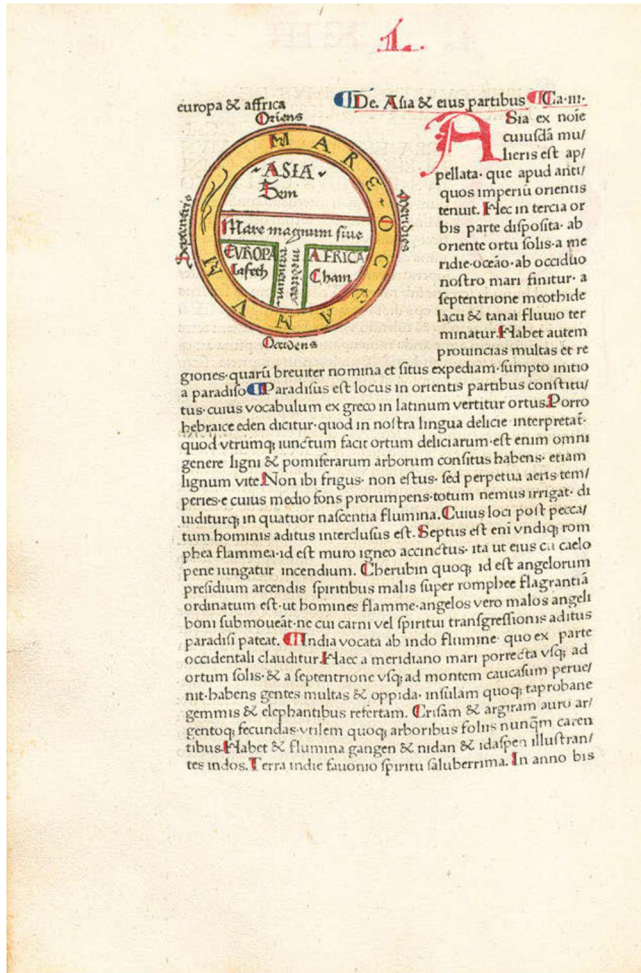 1.
europa & affrica
De. Asia & eius partibus Ca·iii·
Oriens
MARE OCEANVM
ASIA
Sem
Mare magnum siue
EVROPA
Iafeth
mediterraneum
AFRICA
Cham
Septentrio
Meridies
Occidens
Asia ex noīe
cuiusdā mu/
lieris est ap/
pellata· que apud anti/
quos imperiū orientis
tenuit. Hec in tercia or
bis parte disposita· ab
oriente ortu solis· a me
ridie·oceāo·ab occiduo
nostro mari finitur· a
septentrione meothide
lacu & tanai fluuio ter
minatur. Habet autem
prouincias multas et re
giones·quarū breuiter nomina et situs expediam·sumpto initio
a paradiso Paradisus est locus in orientis partibus constitu/
tus·cuius vocabulum ex greco in latinum vertitur ortus. Porro
hebraice eden dicitur·quod in nostra lingua delicie interpretat̄·
quod vtrumq; iunctum facit ortum deliciarum·est enim omni
genere ligni & pomiferarum arborum consitus habens· etiam
lignum vite. Non ibi frigus· non estus· sed perpetua aeris tem/
peries·e cuius medio fons prorumpens·totum nemus irrigat· di
uiditurq; in quatuor nascentia flumina. Cuius loci post pecca/
tum hominis aditus interclusus est. Septus est eni vndiq; rom
phea flammea·id est muro igneo accinctus· ita ut eius cū caelo
pene iungatur incendium. Cherubin quoq; id est angelorum
presidium arcendis spiritibus malis super romphee flagrantiā
ordinatum est·ut homines flamme·angelos vero malos angeli
boni submoueāt·ne cui carni vel spiritui transgressionis aditus
paradisi pateat. India vocata ab indo flumine· quo ex parte
occidentali clauditur. Haec a meridiano mari porrecta vsq; ad
ortum solis·& a septentrione vsq; ad montem caucasum perue/
nit·habens gentes multas & oppida· insulam quoq; taprobane
gemmis & elephantibus refertam. Crisam & argiram auro ar/
gentoq; fecundas·vtilem quoq; arboribus foliis nunq̄m caren
tibus. Habet & flumina gangen & nidan & idaspen illustran/
tes indos. Terra indie fauonio spiritu saluberrima. In anno bis